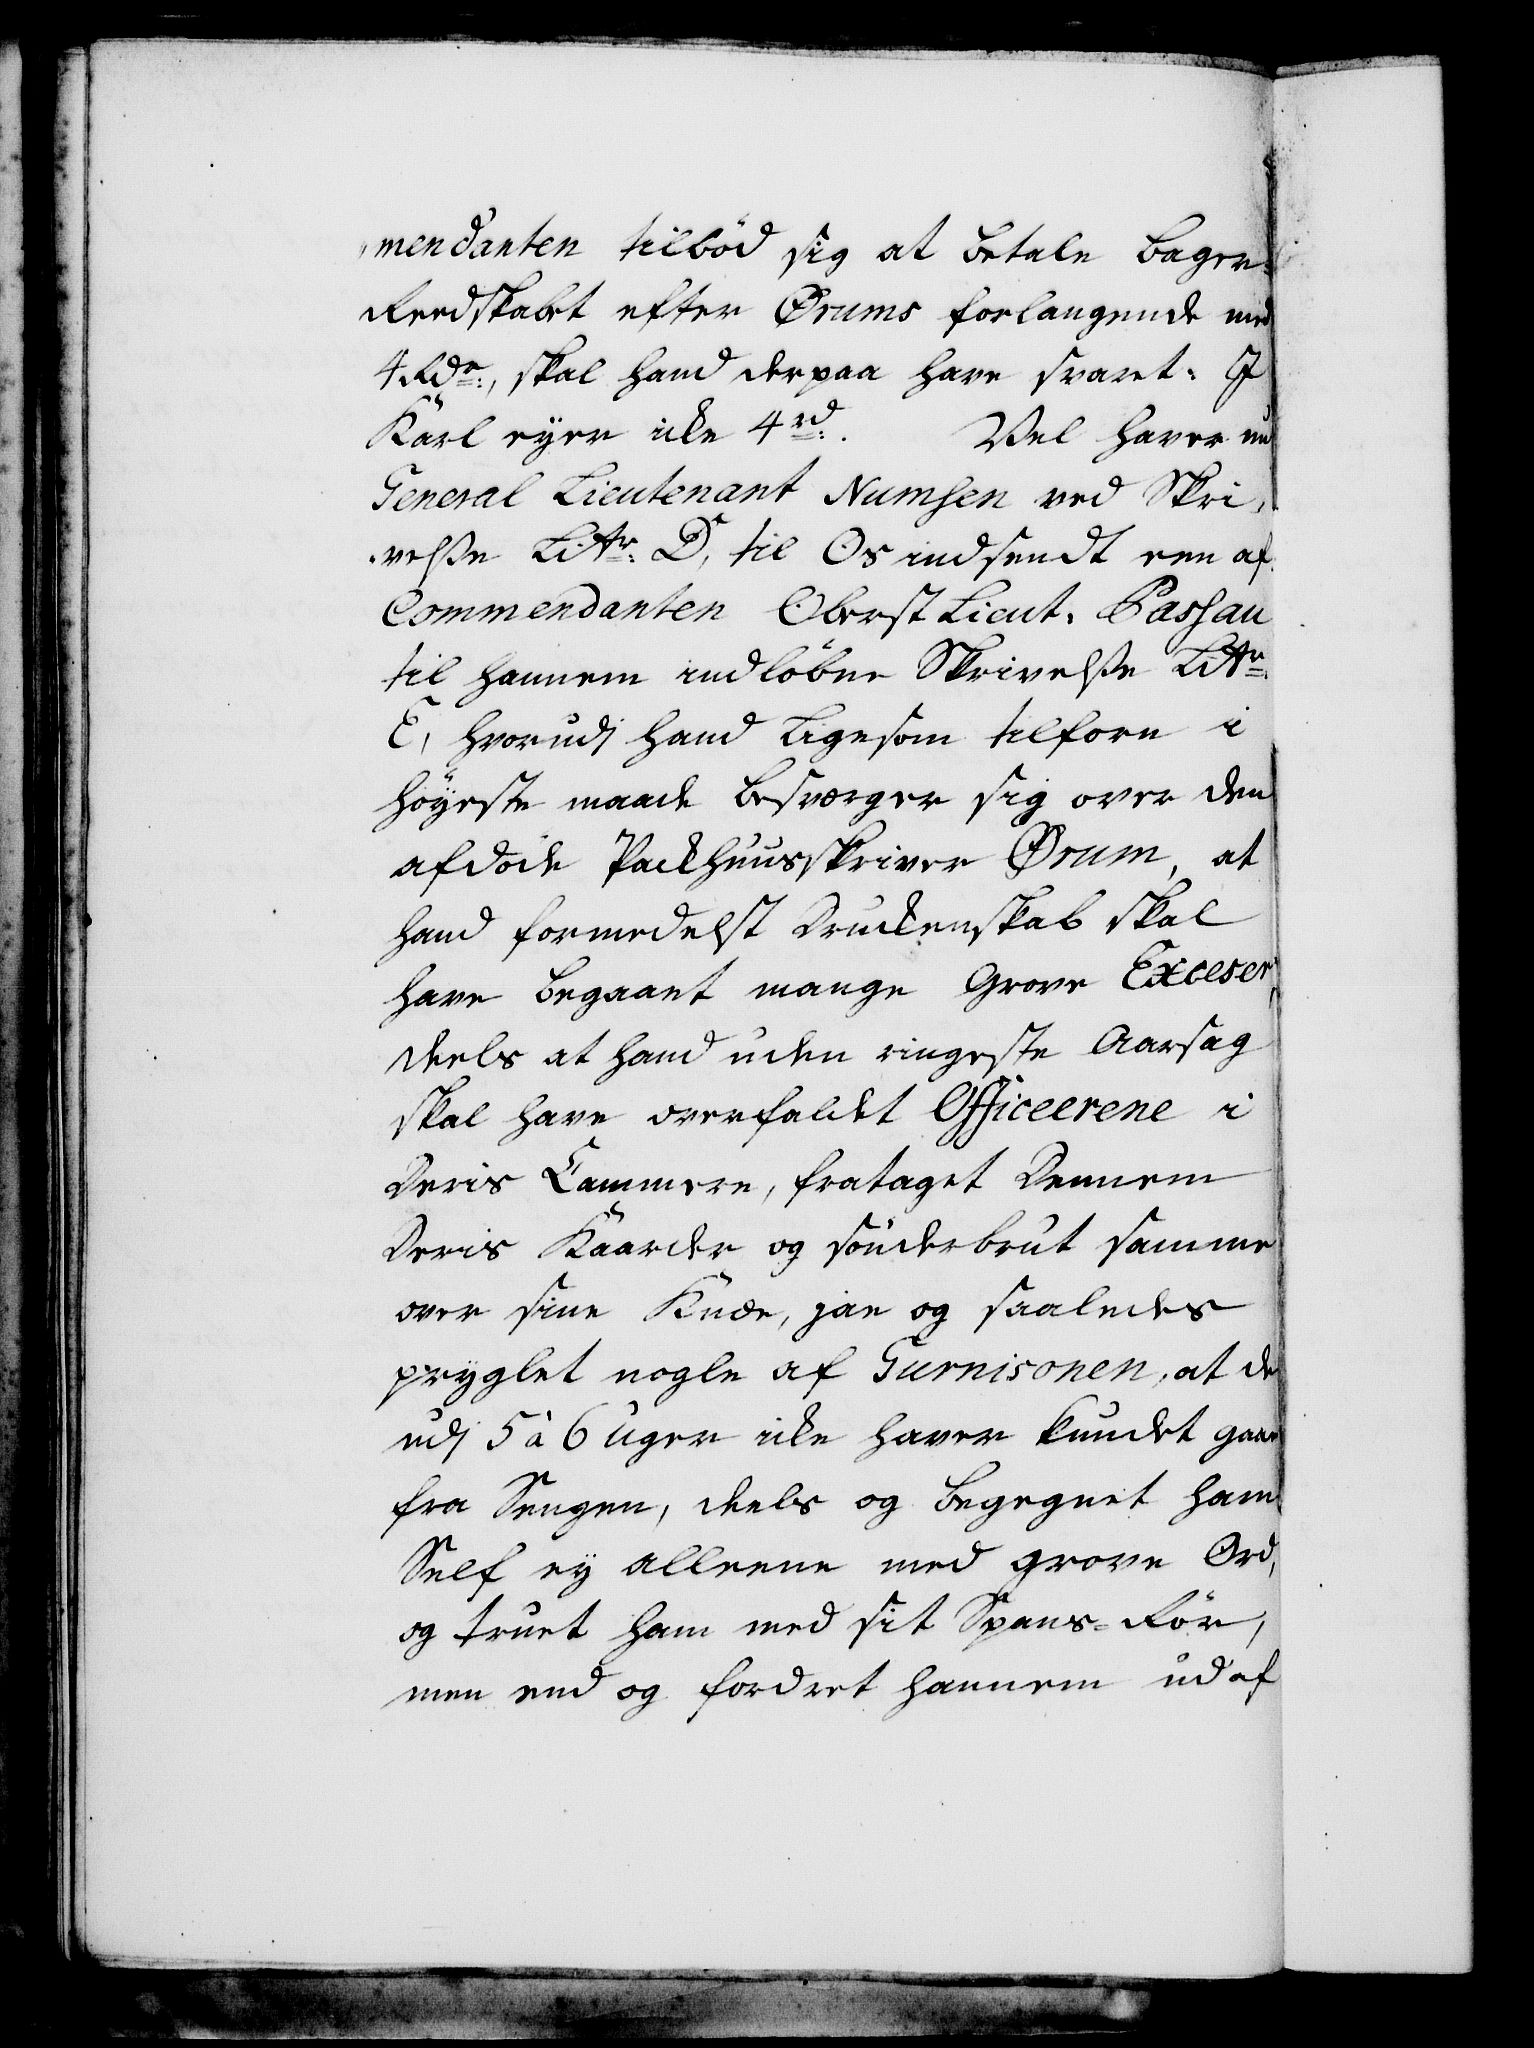 mendanten tilbød sig at betale bager-
Reedskabet efter Ørums forlangende med
4 Rdr:, skal hand derpaa have svaret: I
Karl eyer icke 4 rd:. Vel haver nu
General Lieutenant Numsen ved Skri-
velsse Littr: D, til Os indsendt een af
Commendanten Oberst Lieut: Passau
til hannem indløbne Skrivelsse Littr:
E, hvorudj hand ligesom tilforn i
høyeste maade besværger sig over den
afdøde Packhuusskriver Ørum, at
hand formedelst Druckenskab skal
have begaaet mange Grove Exceser,
deels at hand uden ringeste Aarsag
skal have overfaldet Officeerene i
Deris Cammere, frataget Dennem
Deris Kaarder og sønderbrut samme
over sine Knæe, jae og saaledes
pryglet nogle af Gurnisonen, at de
udj 5 à 6 Uger icke haver kundet gaae
fra Sengen, deels og begegnet ham
Self ey alleene med grove Ord,
og truet ham med sit Spans-Rør,
men end og fordret hannem ud af